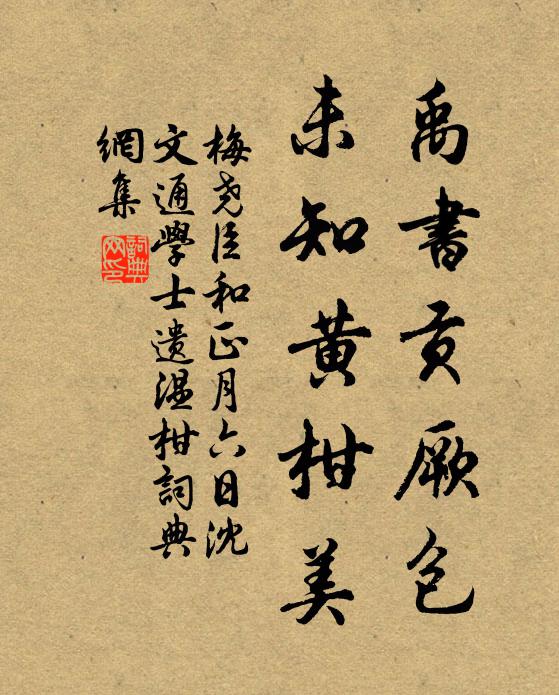 禹書貢厥包
未知黄柑美
梅堯臣和正月六日沈
文通學士遺温柑詞典
網集
詞典網印